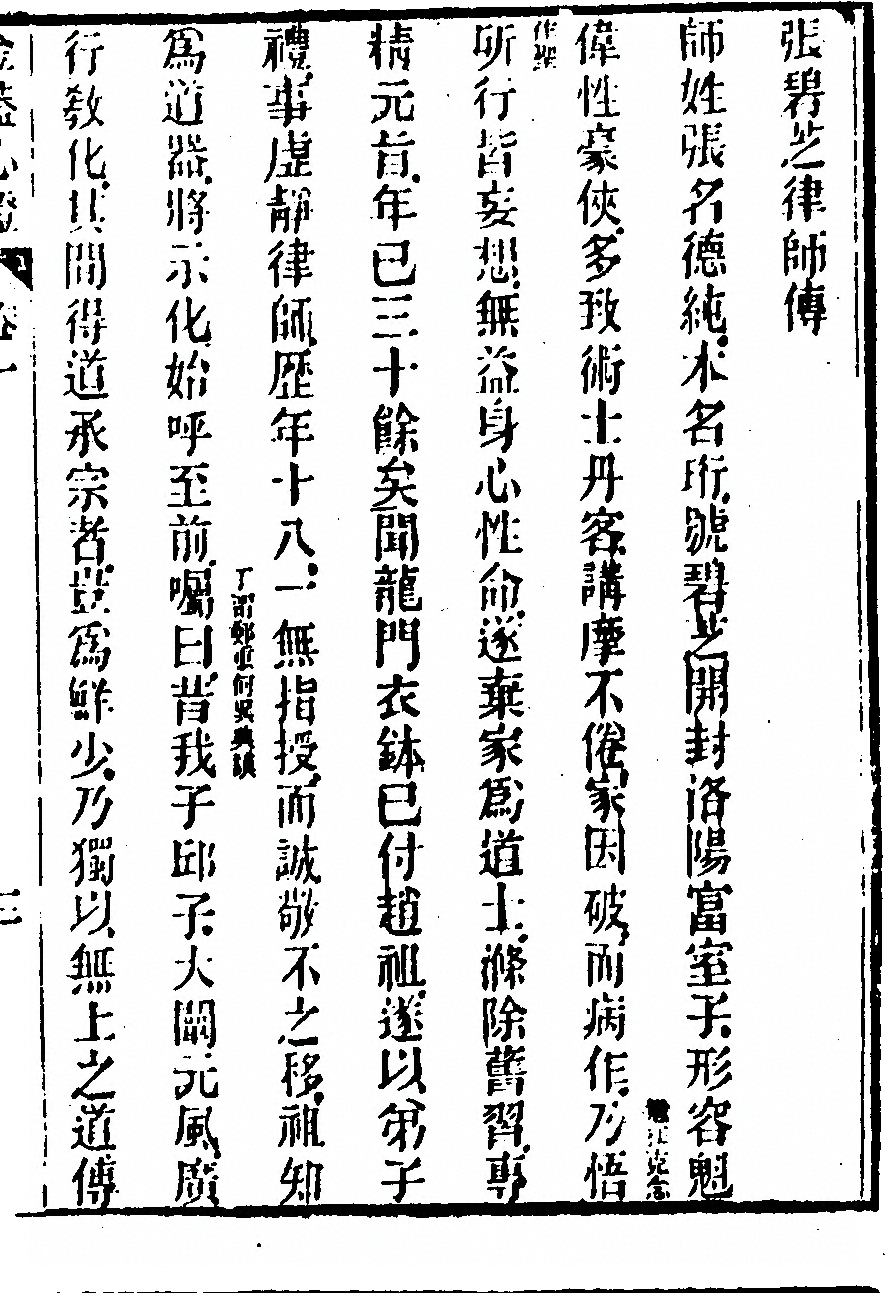 張碧芝律師傳
師姓張名德純.本名珩.號碧芝.開封洛陽富室子.形容魁
偉.性豪俠.多致術士丹客.講摩不倦.家因破.而病作.乃悟
惟狂克念作聖
所行皆妄想.無益身心性命.遂棄家爲道士.滌除舊習.專
精元旨.年已三十餘矣.聞龍門衣鉢已付趙祖.遂以弟子
禮.事虛靜律師.歷年十八.一無指授.而誠敬不之移.祖知
爲道器.將示化.始呼至前.囑曰.昔我子邱子.大闡元風.廣
行敎化.其間得道承宗者.豈爲鮮少.乃獨以無上之道傳
金蓋心燈 卷一 三